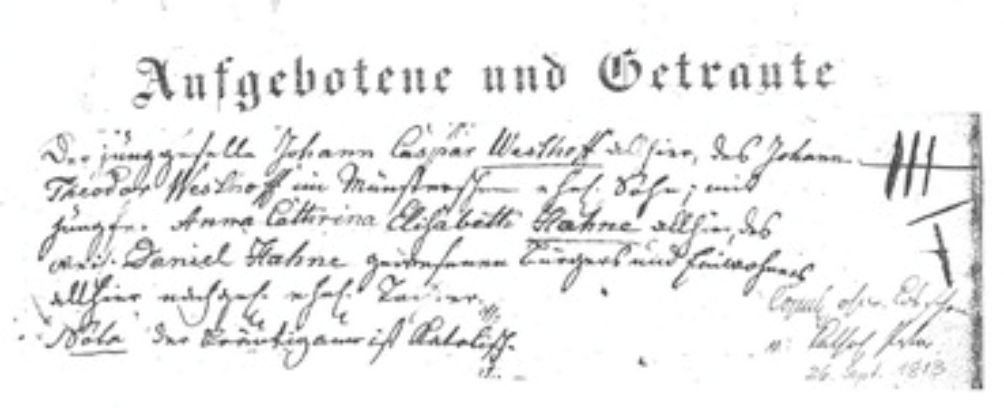 Aufgebotene und Getraute
Der Junggeselle Johann Caspar Westhoff allhier, des Johann
Theodor Westhoff im Münsterschen ehel. Sohn; mit
Jungfr. Anna Cathrina Elisabeth Hahne allhier, des
weil. Daniel Hahne gewesenen Bürgers und Einwohners
allhier nachgel. ehel. Tochter.
Nota der Bräutigam ist Katolisch.
Copul.
26. Sept. 1813